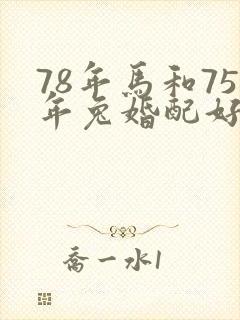 78年馬和75
年兔婚配好
喬一水1